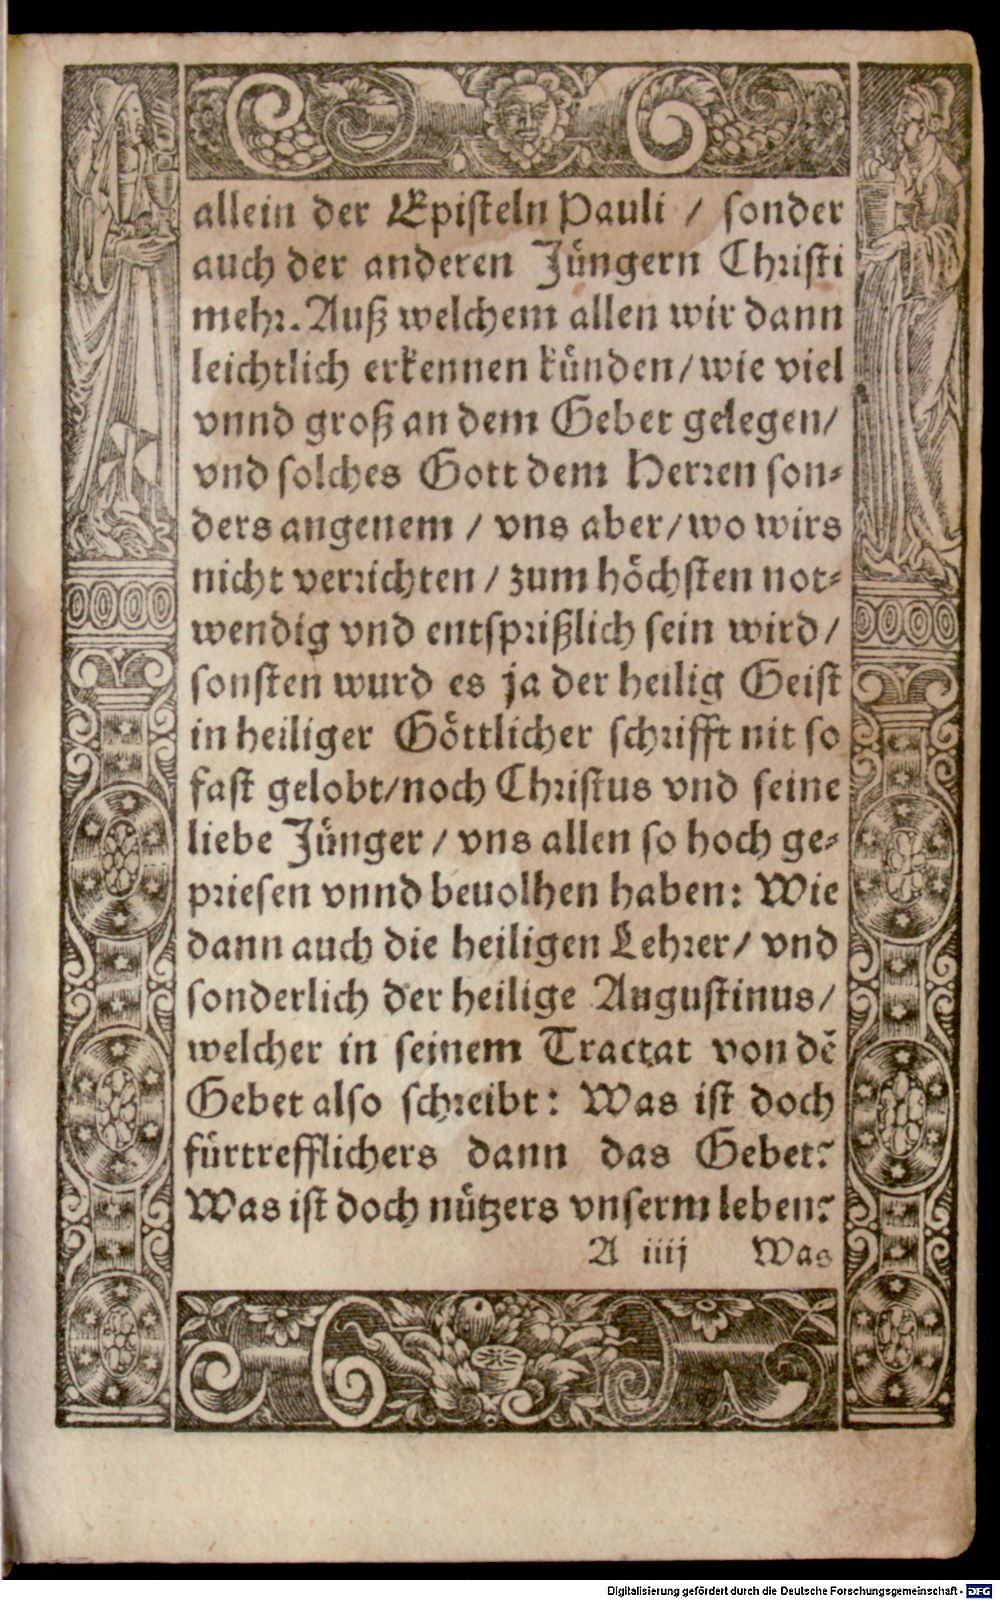 allein der Epiſteln Pauli / ſonder
auch der anderen Jüngern Chriſti
mehr. Auß welchem allen wir dann
leichtlich erkennen künden / wie viel
vnnd groß an dem Gebet gelegen /
vnd ſolches Gott dem Herren ſon-
ders angenem / vns aber / wo wirs
nicht verrichten / zum höchſten not-
wendig vnd entſprißlich ſein wird /
ſonſten wurd es ja der heilig Geiſt
in heiliger Göttlicher ſchrifft nit ſo
faſt gelobt / noch Chriſtus vnd ſeine
liebe Jünger / vns allen ſo hoch ge-
prieſen vnnd beuolhen haben: Wie
dann auch die heiligen Lehrer / vnd
ſonderlich der heilige Auguſtinus /
welcher in ſeinem Tractat von dē
Gebet alſo ſchreibt: Was iſt doch
fürtrefflichers dann das Gebet?
Was iſt doch nützers vnſerm leben?
A iiij Was
Digitalisierung gefördert durch die Deutsche Forschungsgemeinschaft - DFG